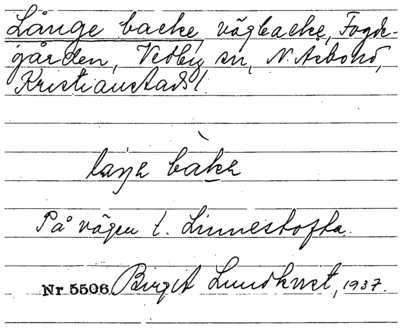 Långe backe, vägbacke, Fogde-
gården, Vedby sn, N. Åsbohd,
Kristianstads l.
låŋe bàke
På vägen t. Linnestofta.
Nr 5506 Birgit Lundkvist, 1937.